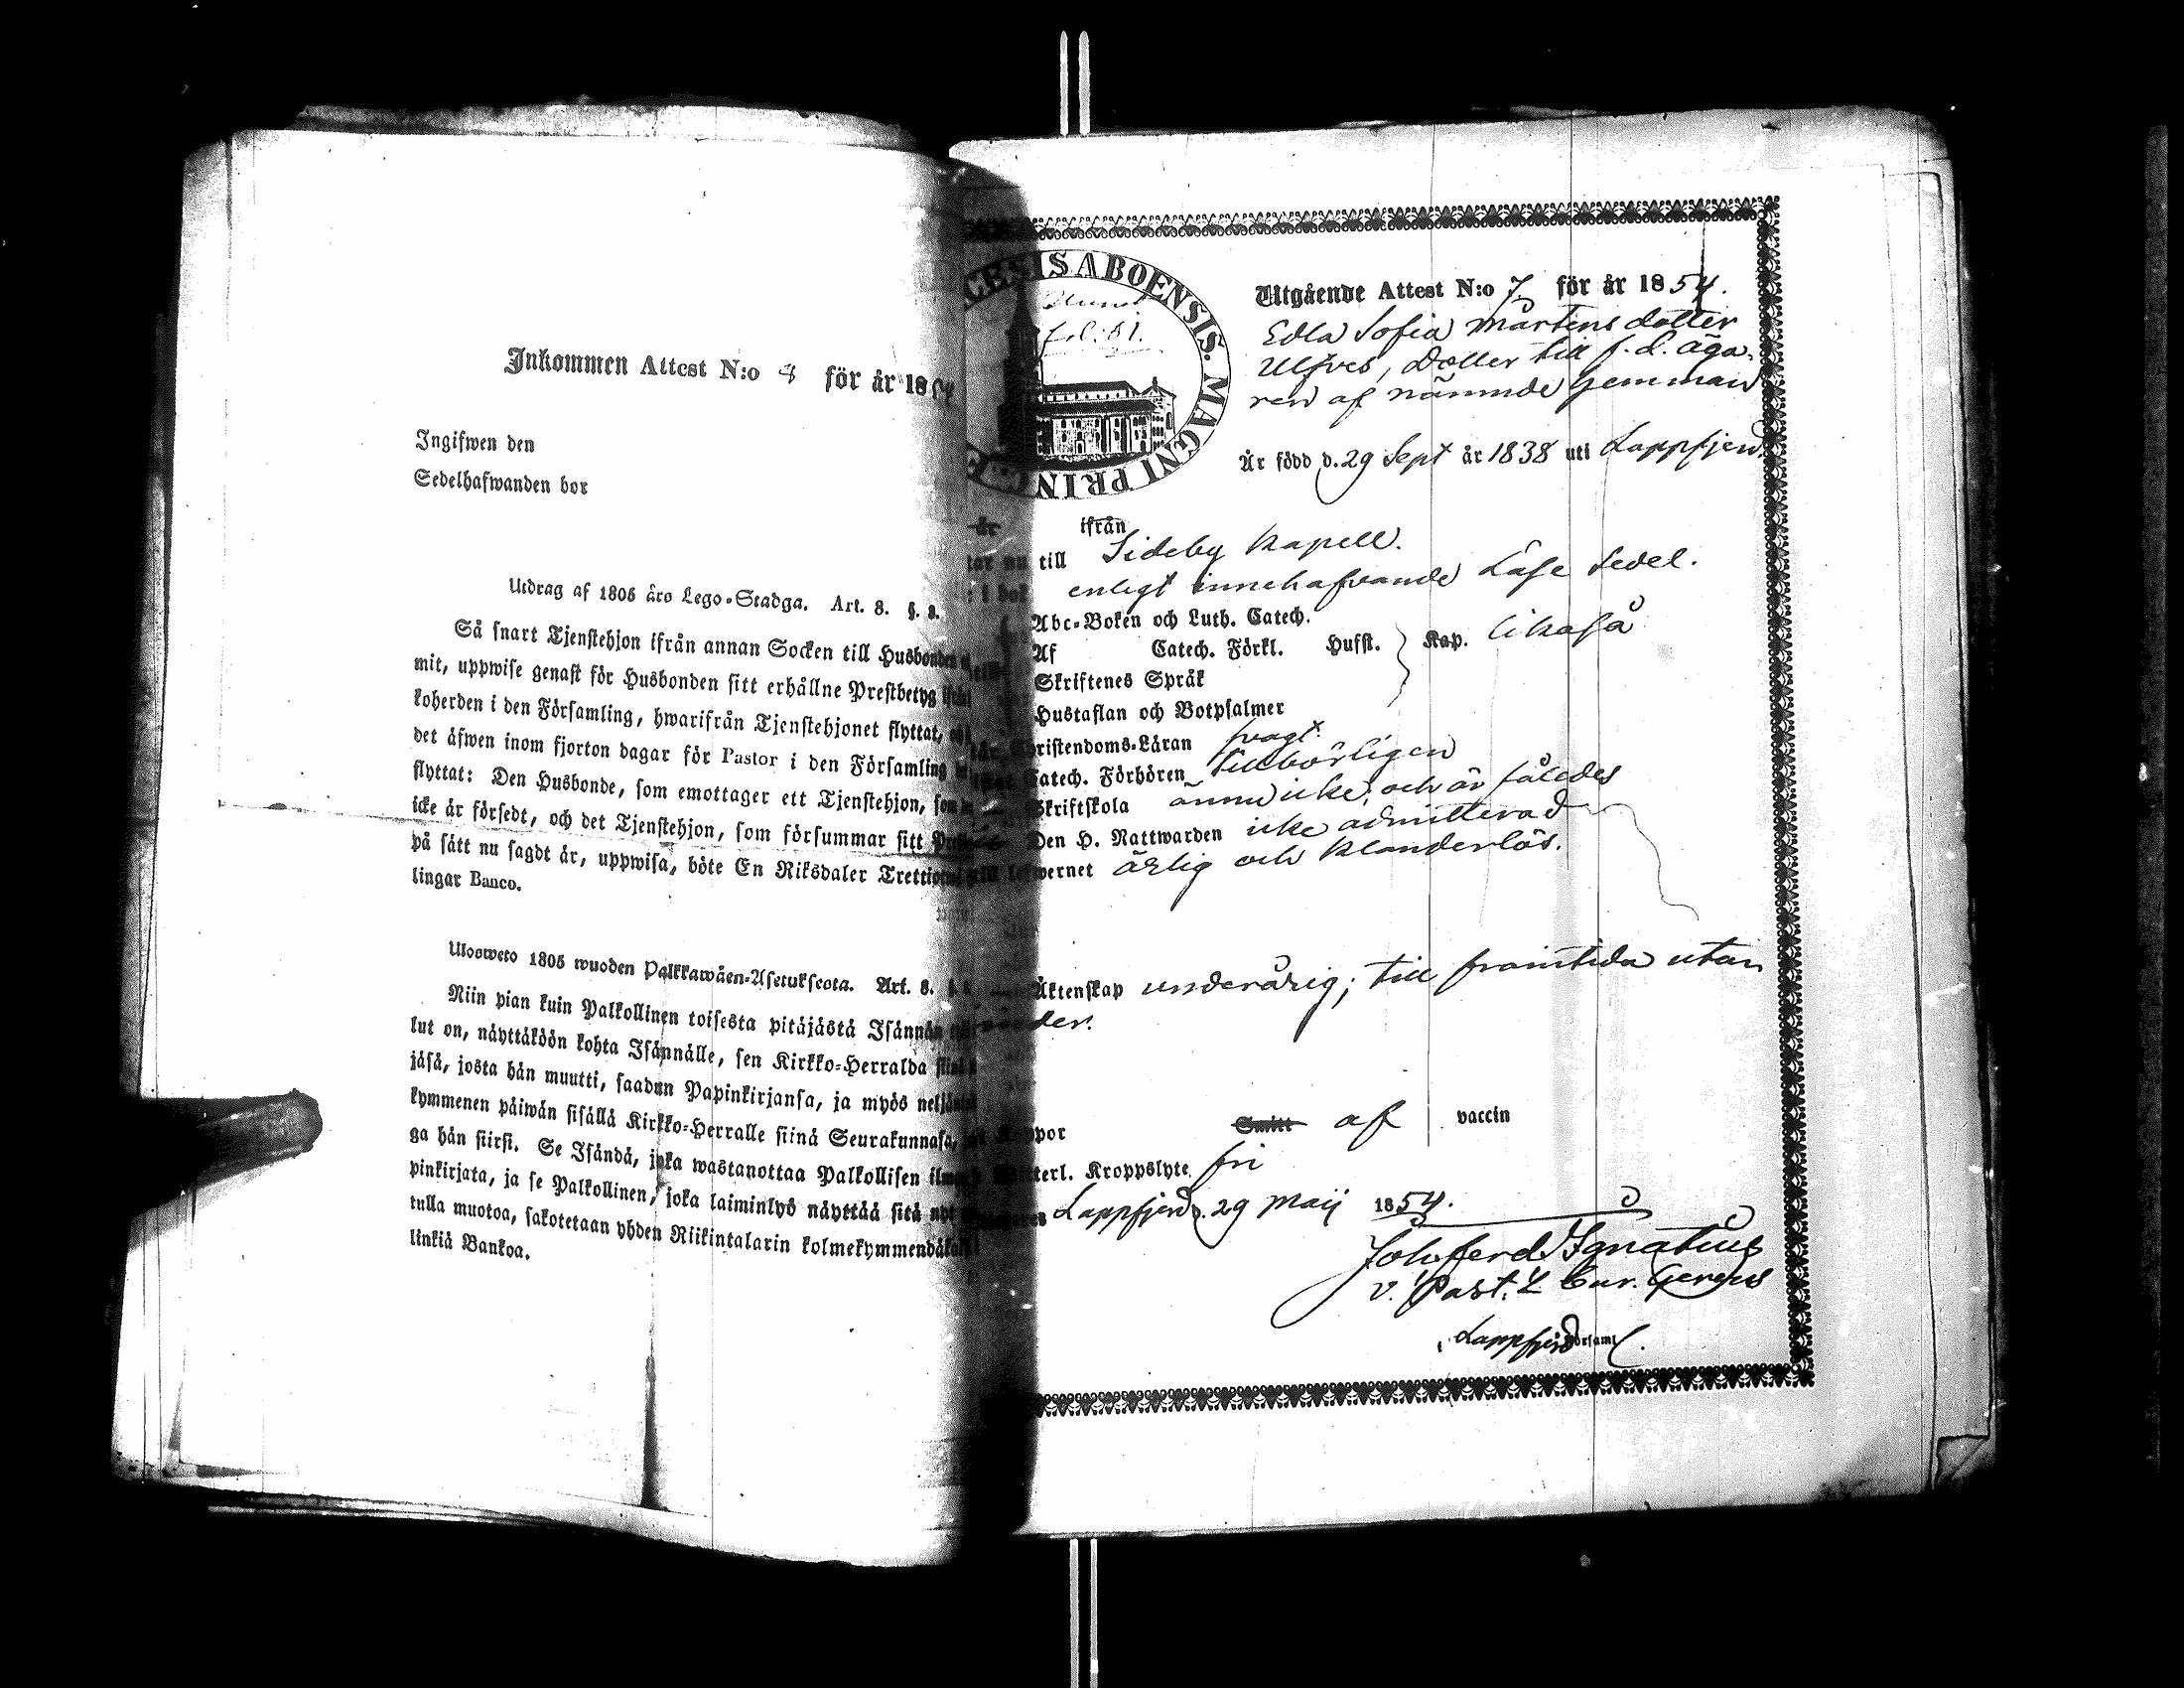 Inkommen Attest N:o för år 1854
Ingifwen den
Sedelhafwanden bor
Utdrag af 1805 års Lego-Stadga. Art. 8. §. 2.
Så snart Tjenstehjon ifrån annan Socken till Husbonden
mit, uppwise genast för Husbonden sitt erhållne Prestbetyg
koherden i den Församling, hwarifrån Tjenstehjonet flyttat,
det äfwen inom fjorton dagar för Pastor i den Församling
flyttat: Den Husbonde, som emottager ett Tjenstehjon,
icke är försedt, och det Tjenstehjon, som försummar sitt
på sätt nu sagdt är, uppwisa, böte En Riksdaler
lingar Banco.
Ulosweto 1805 wuoden Palkkawäen-Asetuksesta. Art. 8.
Niin pian kuin Palkollinen toisesta pitäjästä Isännän
lut on, näyttäköön kohta Isännälle, sen Kirkko-Herralda
jäsä, josta hän muutti, saadun Papinkirjansa, ja myös
kymmenen päiwän sisällä Kirkko-Herralle siinä Seurakunnasa,
ga hän siirsi. Se Isändä, joka wastanottaa Palkollisen
pinkirjata, ja se Palkollinen, joka laiminlyö näyttää sitä nyt
tulla muotoa, sakotetaan yhden Riikintalarin
linkiä Bankoa.
CESIS ABOENSIS. MAGNI PRINC.
Utgående Attest N:o 7 för år 1854.
Edla Sofia Mårtens dotter
Ulfves, dotter till f. d. äga-
ren af nämnde hemman
Är född d. 29 Sept år 1838 uti Lappfjerd
år ifrån
till Sideby Kapell.
enligt innehafvande Läse Sedel.
Abc-Boken och Luth. Catech.
Af Catech. Förkl. Husst. Kap. likaså
Skriftenes Språk
Hustaflan och Botpsalmer
Christendoms-Läran svagt
Catech. Förhören tillbörligen
Skriftskola ännu icke, och är således
Den H. Nattwarden icke admitterad
lefwernet ärlig och klanderlös.
Äktenskap underårig; till framtida utan
hinder.
Koppor Smitt af vaccin
Witterl. Kroppslyte fri
Lappfjerd d. 29 Maij 1854.
Joh. Ferd. Ignatius
v. Past. & Cur. Gerens
i Lappfjerd Församl.